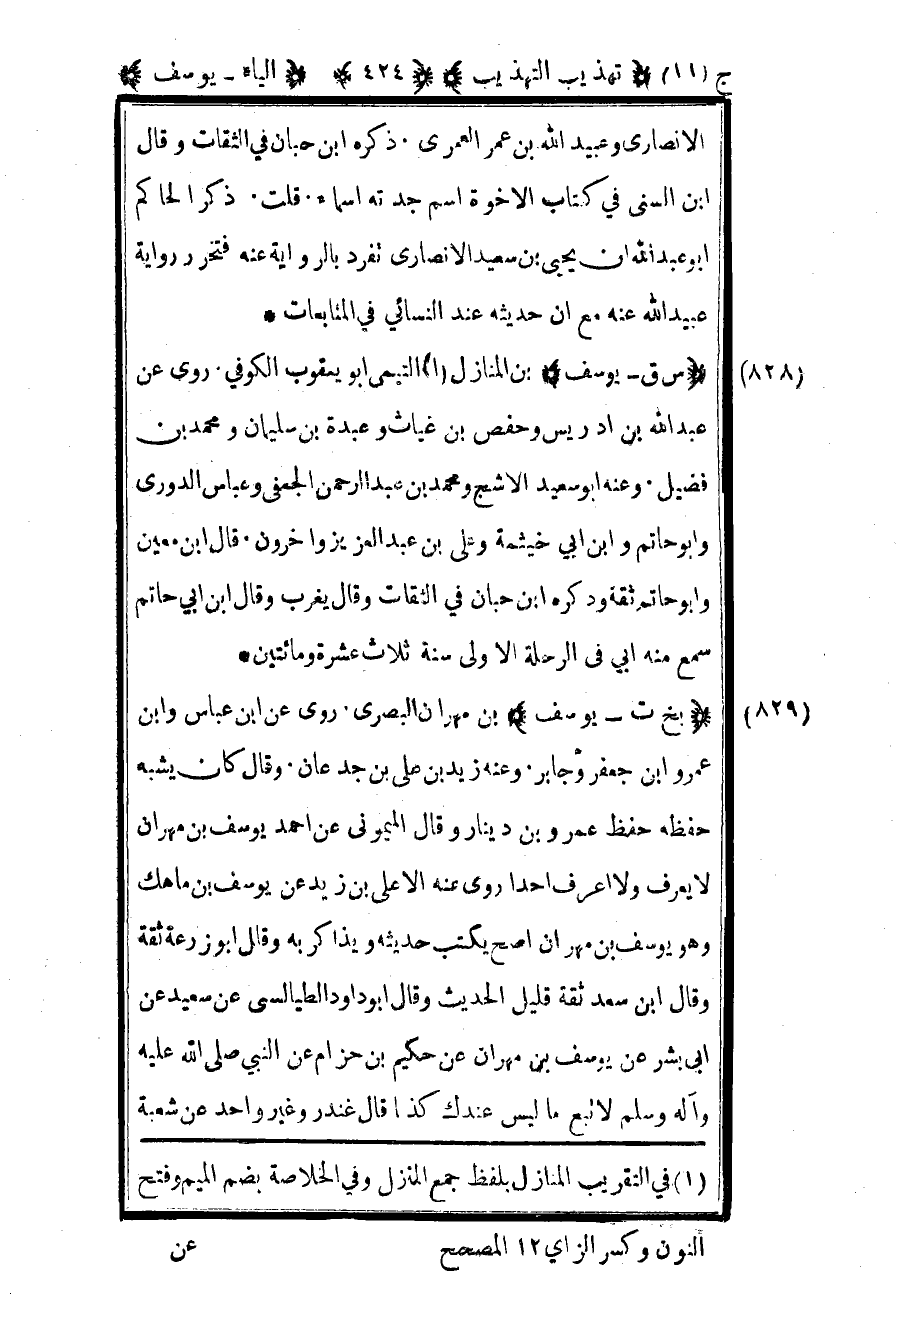 ج (١١) ﴿ تهذيب التهذيب ﴾ ﴿ ٤٢٤ ﴾ ﴿ الياء ـ يوسف ﴾
الانصارى وعبيد الله بن عمر العمرى ٠ ذكره ابن حبان في الثقات وقال
ابن السنى في كتاب الاخوة اسم جدته اسماء ٠ قلت ٠ ذكر الحاكم
ابو عبدالله ان يحيى بن سعيد الانصارى تفرد بالرواية عنه فتخرر رواية
عبيدالله عنه مع ان حديثه عند النسائي في المتابعات *
(٨٢٨) ﴿ س ق ـ يوسف ﴾ بن المنازل (١) التيمى ابو يعقوب الكوفي ٠ روى عن
عبدالله بن ادريس وحفص بن غياث وعبدة بن سليمان ومحمد بن
فضيل ٠ وعنه ابو سعيد الاشج ومحمد بن عبدالرحمن الجعفى وعباس الدورى
وابو حاتم وابن ابي خيثمة وعلى بن عبدالعزيز واخرون ٠ قال ابن معين
وابو حاتم ثقة ودكره ابن حبان في الثقات وقال يغرب وقال ابن ابي حاتم
سمع منه ابي فى الرحلة الاولى سنة ثلاث عشرة ومائتين *
(٨٢٩) ﴿ بخ ت ـ يوسف ﴾ بن مهران البصرى ٠ روى عن ابن عباس وابن
عمرو ابن جعفر وجابر ٠ وعنه زيد بن على بن جدعان ٠ وقال كان يشبه
حفظه حفظ عمرو بن دينار وقال الميمونى عن احمد يوسف بن مهران
لا يعرف ولا اعرف احدا روى عنه الا على بن زيد عن يوسف بن ماهك
وهو يوسف بن مهران اصح يكتب حديثه ويذاكر به وقال ابو زرعة ثقة
وقال ابن سعد ثقة قليل الحديث وقال ابو داود الطيالسى عن سعيد عن
ابى بشر عن يوسف بن مهران عن حكيم بن حزام عن النبي صلى الله عليه
وآله وسلم لا تبع ما ليس عندك كذا قال غندر وغير واحد عن شعبة
(١) في التقريب المنازل بلفظ جمع المنزل وفي الخلاصة بضم الميم وفتح
النون وكسر الزاي ١٢ المصحح
عن